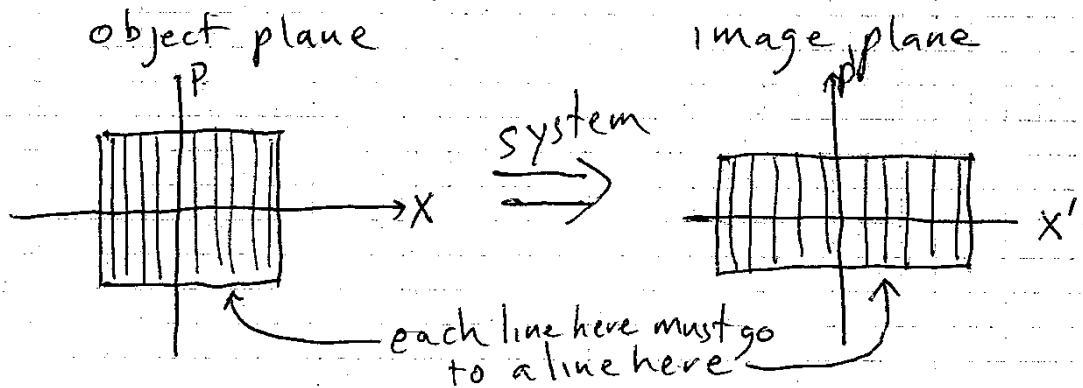 object plane
image plane
P
P'
system
X
X'
each line here must go
to a line here